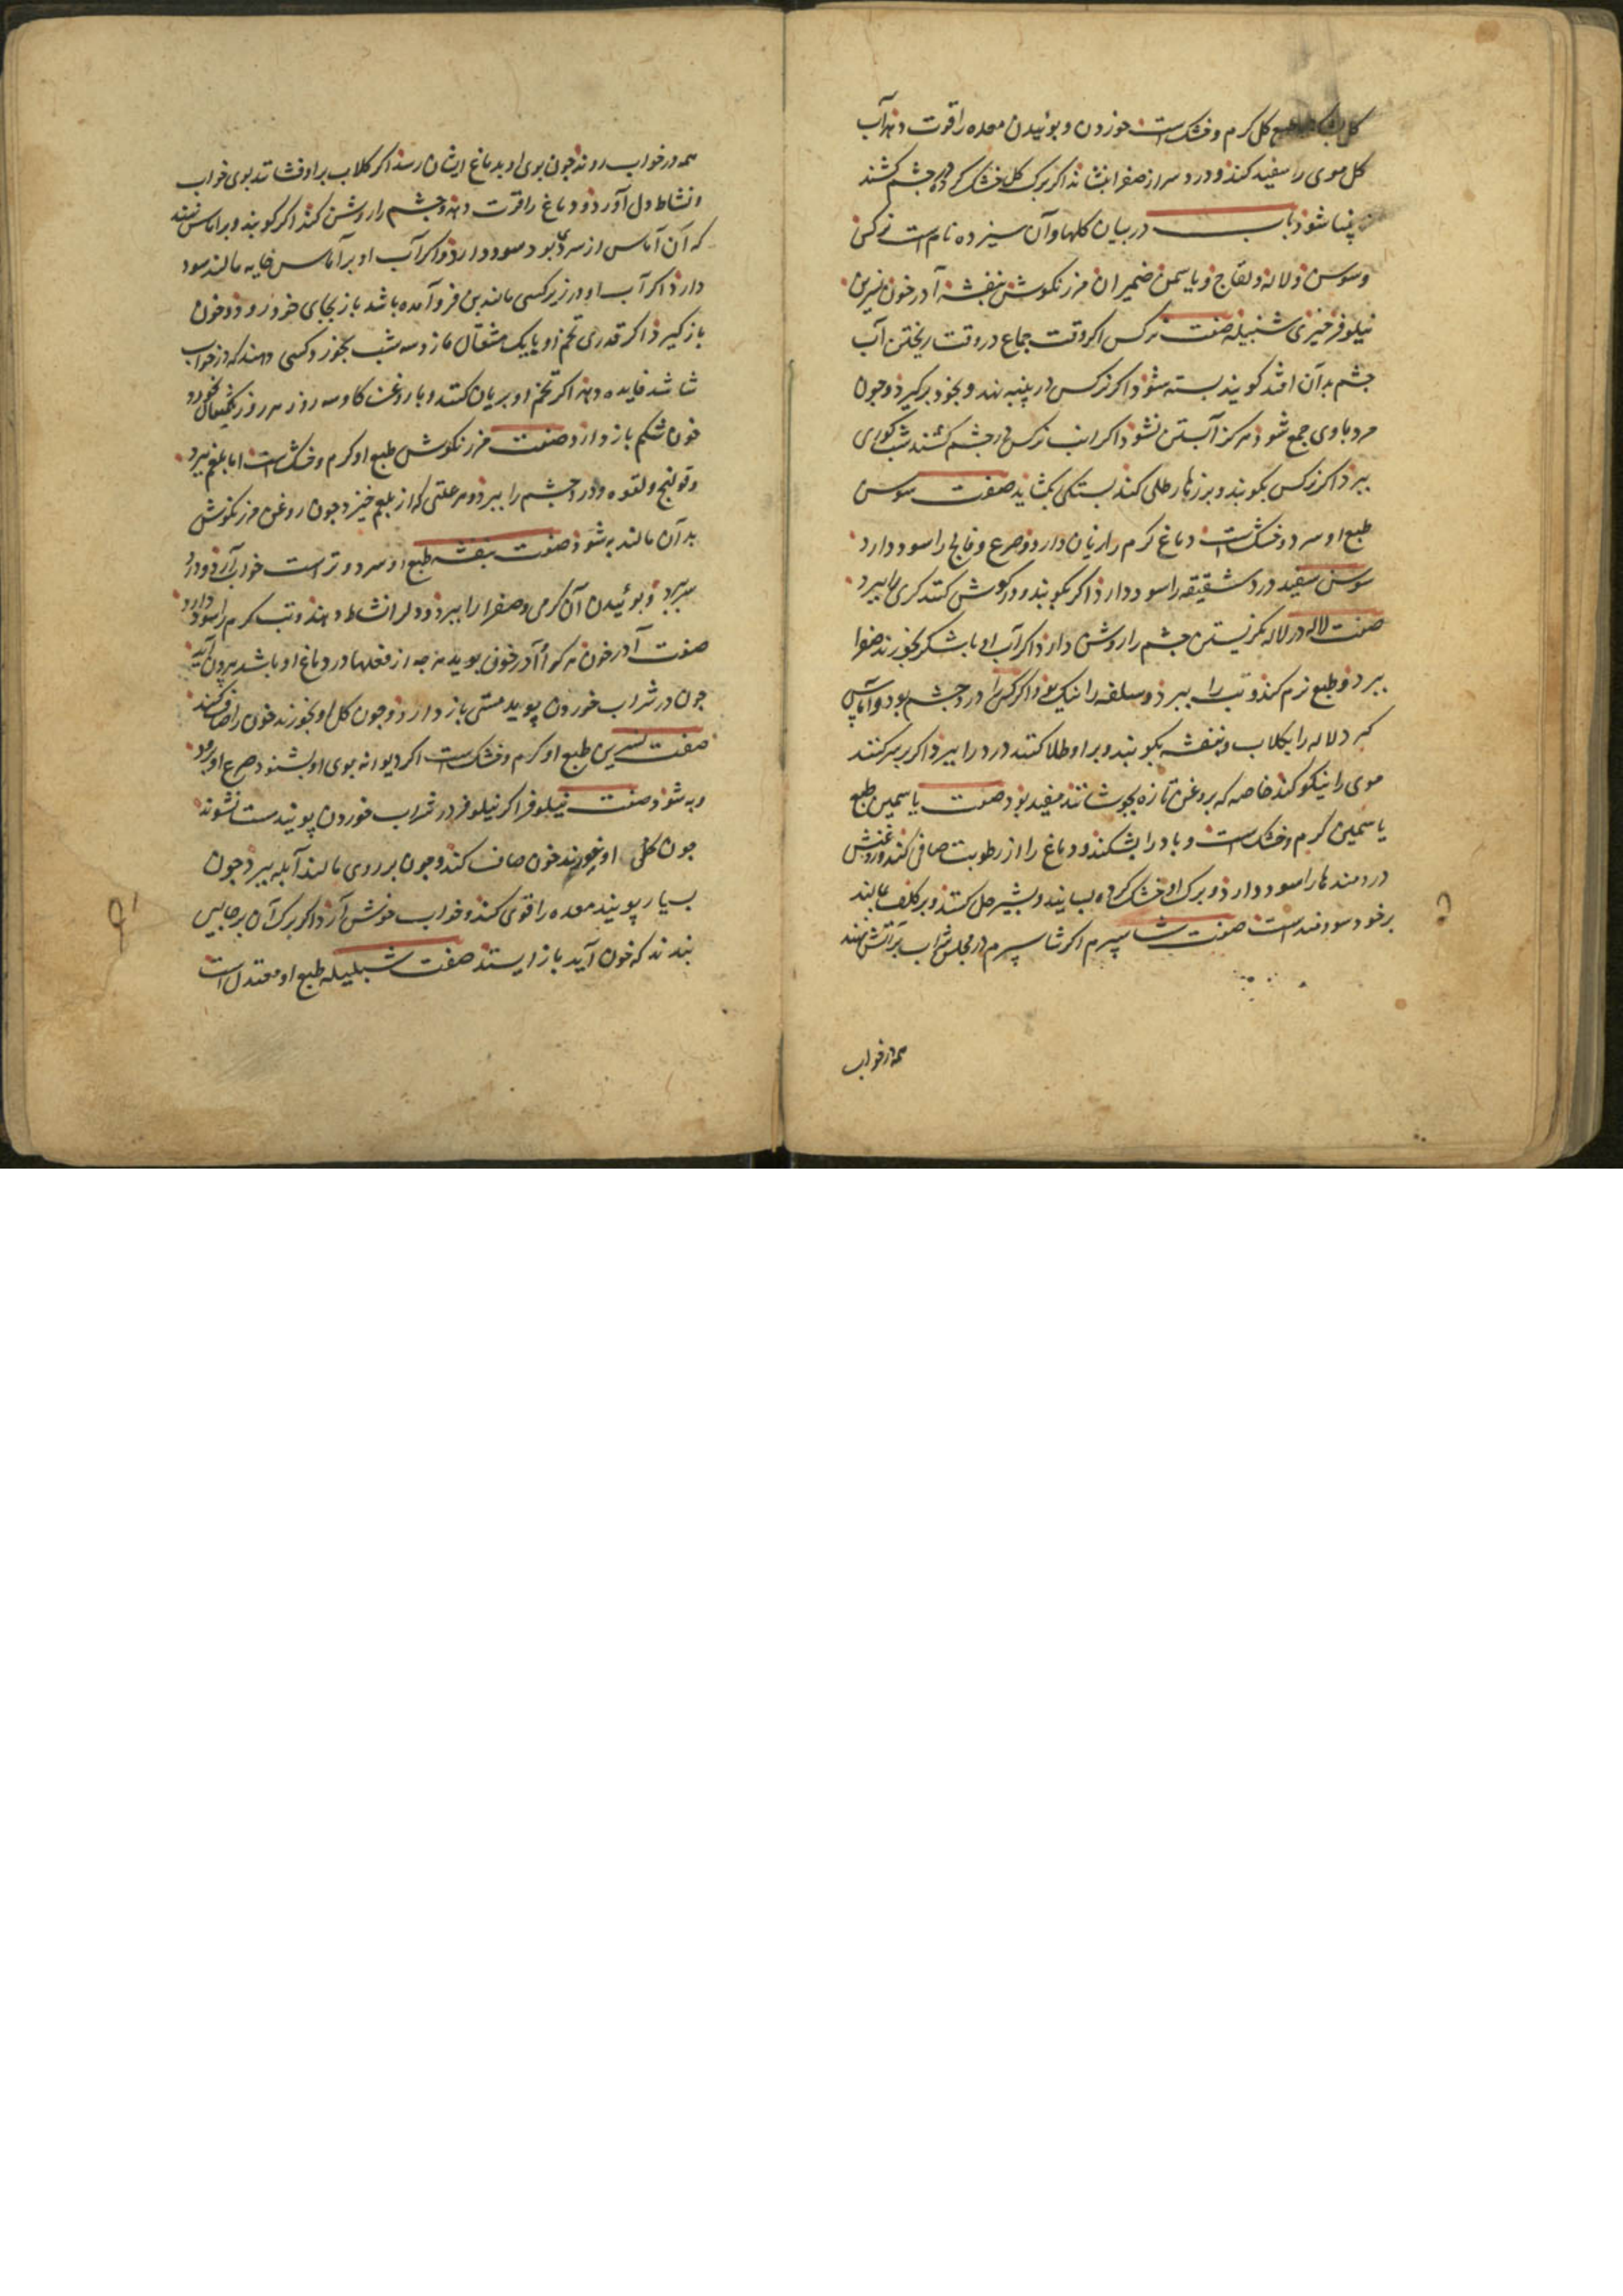 طبع گل گرم و خشکست خوردن و بوئیدن معده را قوت دهد آب
گل موی را سفید کند و درد سر از صفرا بنشاند اکر برک گل خشک کرده در چشم کشند
بینا شود باب در بیان گلها و آن سیزده نام است نرکس
و سوسن و لاله و لفاح و یاسمن ضمیران مرزنکوش بنفشه آدرخون نسرین
نیلوفر خیزی شنبلیله صفت نرکس اکر وقت جماع در وقت ریختن آب
چشم بدآن افتد کویند بسته شود اکر نرکس در پنبه نهد و بخود برکیرد و چون
مرد با وی جمع شود هرکز آبستن نشود اکر آب نرکس در چشم کشند شب کوری
ببرد اکر نرکس بکوبند و بر زهار طلی کنند بستکی بکشاید صفت سوسن
طبع او سرد و خشکست دماغ کرم را زیان دارد و صرع و فالج را سود دارد
سوسن سفید درد شقیقه را سود دارد اکر بکوبند و در کوش کنند کری ببرد
صفت لاله در لاله نکریستن چشم را روشن دارد اکر آب او با شکر بخورند صفرا
ببرد و طبع نرم کند و تب را ببرد و سلفه را نیک بود و اکر کسی را درد چشم بود و آماس
کیرد لاله را بکلاب و بنفشه بکوبند و بر او طلا کنند درد را ببرد اکر بر سر کنند
موی را نیکو کند خاصه که بروغن تازه بجوشانند مفید بود صفت یاسمین طبع
یاسمین کرم و خشکست و باد را بشکند و دماغ را از رطوبت صافی کند و روغنش
دردمندها را سود دارد و برک او خشک کرده بسایند و بشیر حل کنند و بر کلف مالند
برخود سودمند است صفت شاسپرم اکر شاسپرم در مجلس شراب بر آتش نهند
همه در خواب
همه در خواب روند چون بوی او بدماغ ایشان رسد اکر کلاب بر او فشانند بوی خواب
و نشاط دل آورد و دماغ را قوت دهد و چشم را روشن کند اکر کوبند و بر آماس نهند
که آن آماس از سردی بود سود دارد و اکر آب او بر آماس خایه مالند سود
دارد اکر آب او در زیر کسی مالند بن فرو آمده باشد باز بجای خود رود و خون
باز کیرد اکر قدری تخم او با یک مثقال مازو سه شب بخورد کسی دهند که در خواب
شاشد فایده دهد اکر تخم او بریان کنند و با روغن کاو سه روز هر روز یکمثقال بخورد
خون شکم باز دارد صفت مرزنکوش طبع او کرم و خشکست اما بلغم ببرد
و قولنج و لقوه و درد چشم را ببرد و هر علتی که از بلغم خیزد چون روغن مرزنکوش
بدآن مالند به شود صفت بنفشه طبع او سرد و تر است خواب آرد و درد
سر ببرد و بوئیدن آن کرمی و صفرا را ببرد و دل را نشاط دهد و تب کرم را سود دارد
صفت آدرخون هر کو آدرخون بوید هر چه از فعلها در دماغ او باشد بیرون آید
چون در شراب خوردن بوید مستی باز دارد و چون کل او بخورند خون را صاف کند
صفت نسرین طبع او کرم و خشکست اکر دیوانه بوی او بشنود صرع او برود
و به شود صفت نیلوفر اکر نیلوفر در شراب خوردن بویند مست نشوند
چون کل او بخورند خون صاف کند و چون بر روی مالند آبله ببرد چون
بسیار بویند معده را قوی کند و خواب خوش آرد اکر برک آن بر جایی
بندند که خون آید باز ایستد صفت شنبلیله طبع او معتدل است